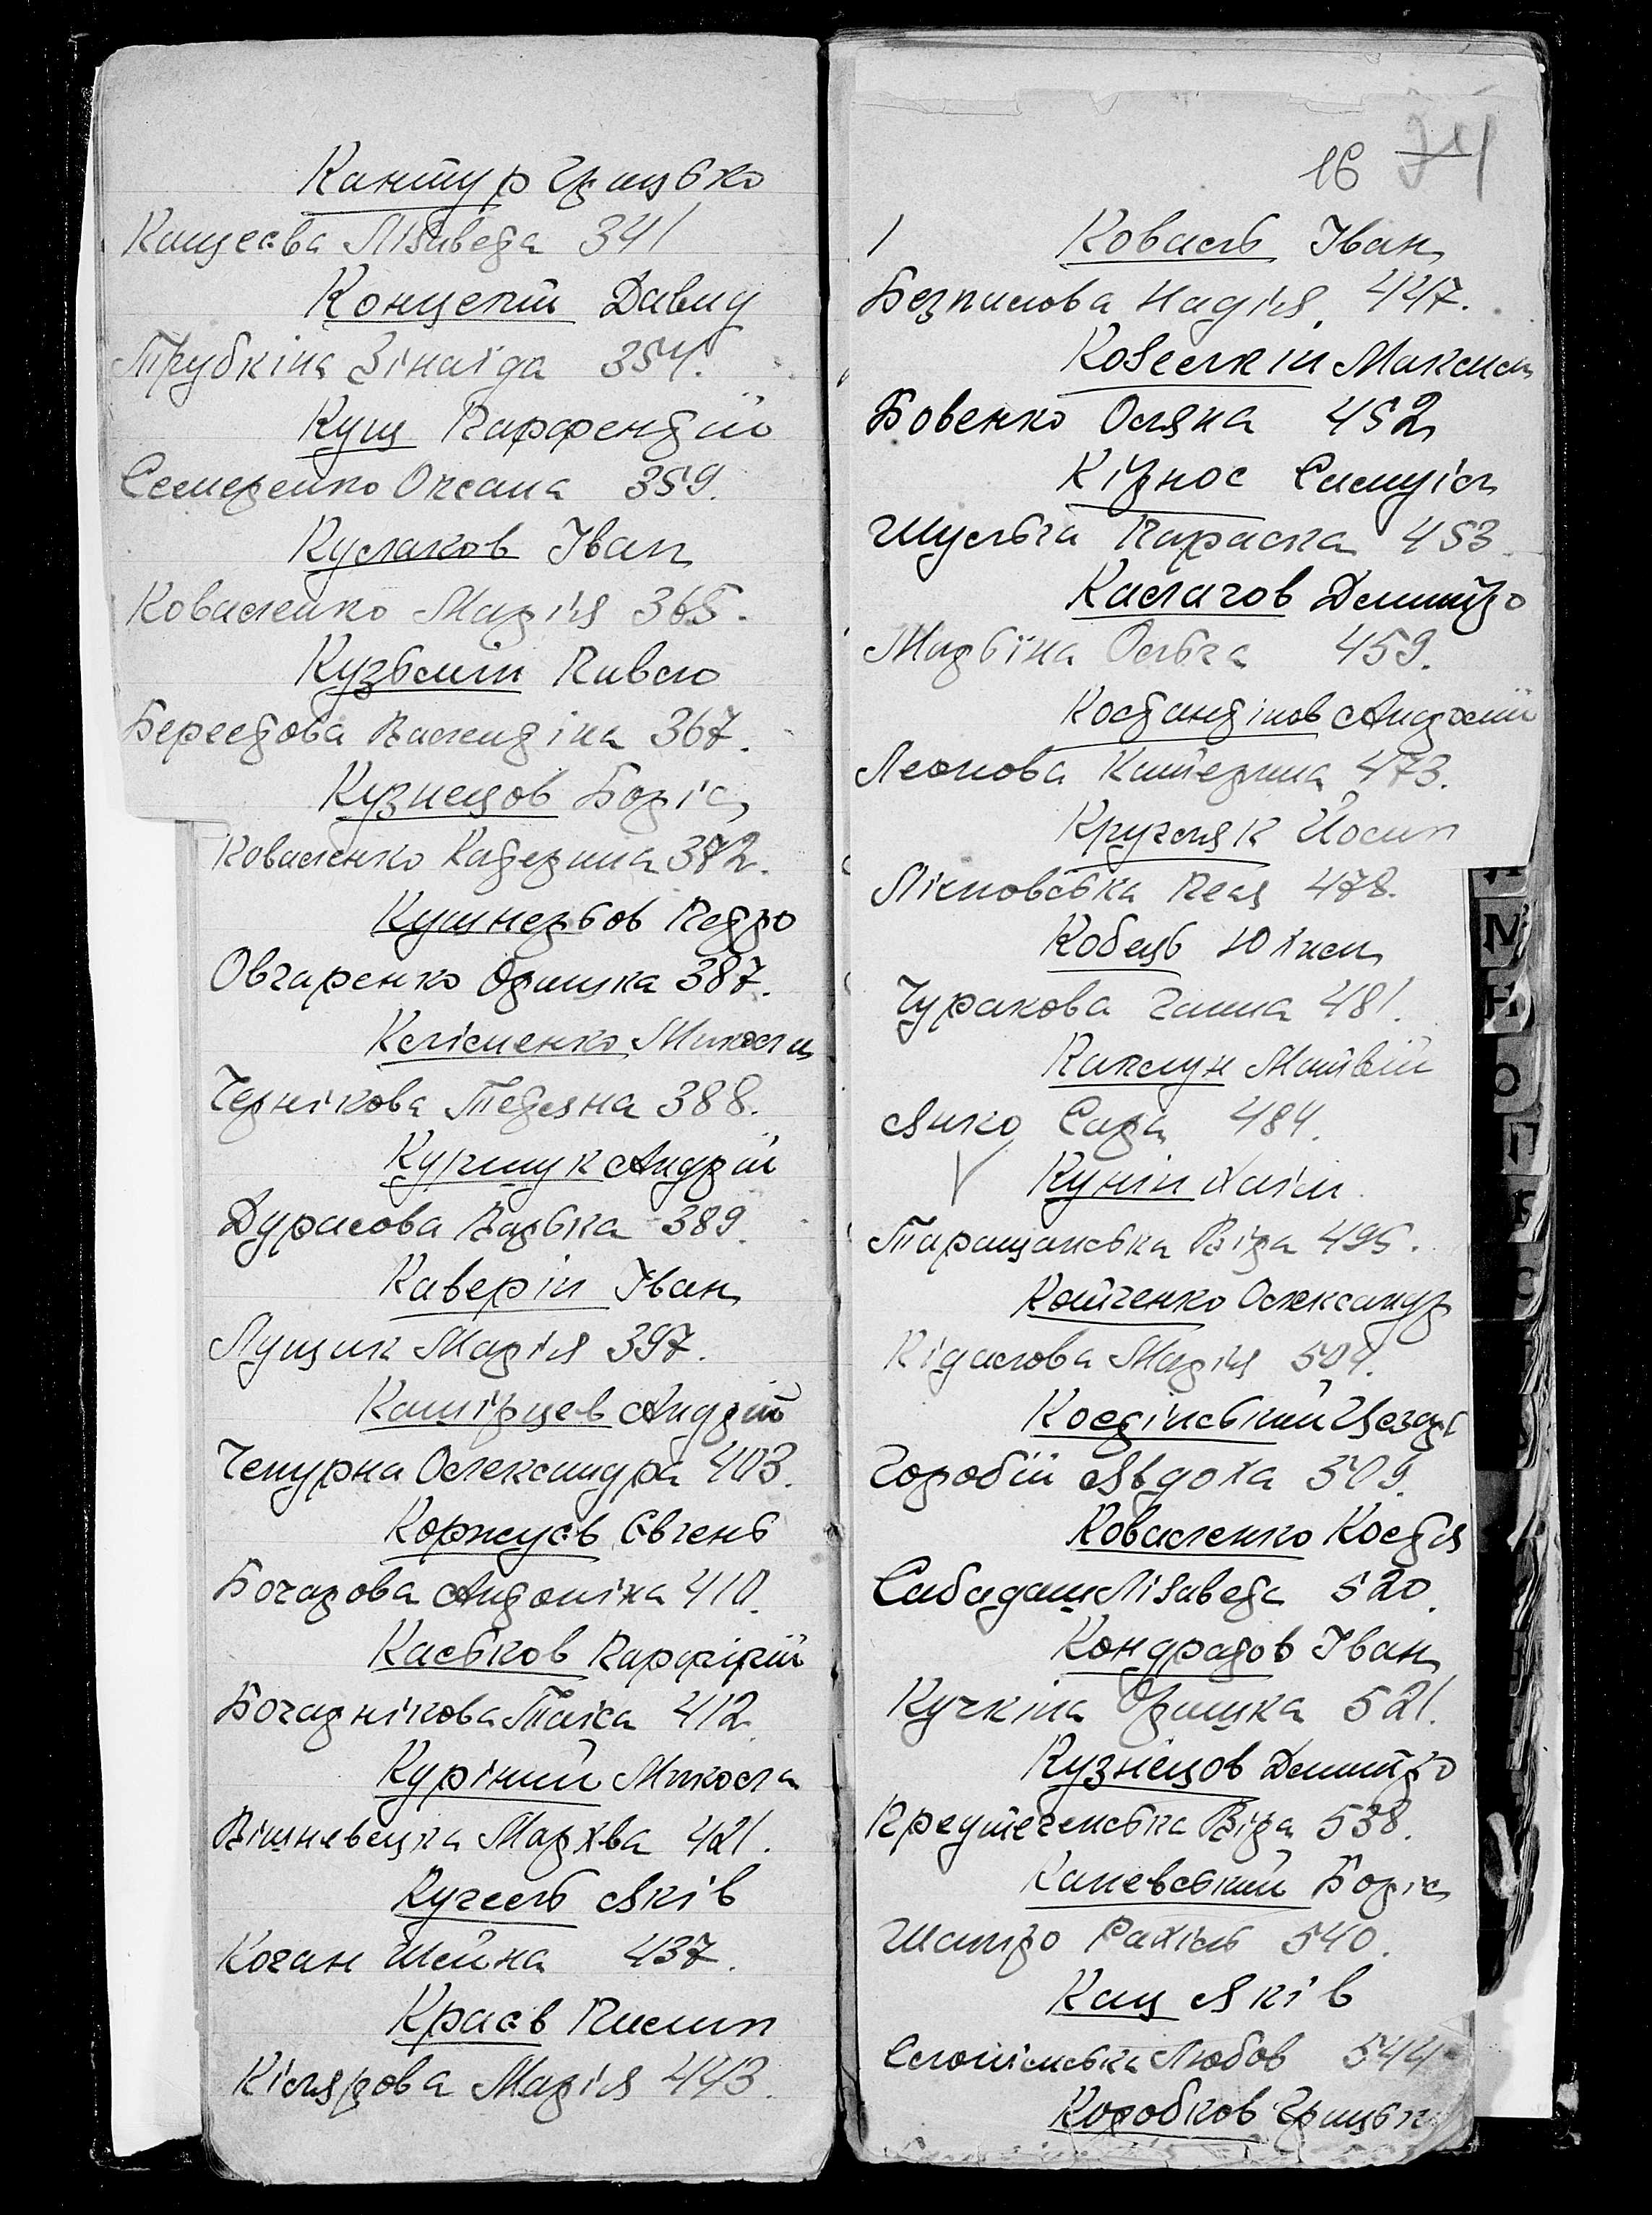 Кантур Грицько
Кащеєва Лізаведа 341
Концепт Давид
Трубкіна Зінаїда 354.
Кущ Парфентій
Семеренко Оксана 359.
Кулаков Іван
Коваленко Марія 365.
Кузьмін Павло
Берестова Валентіна 367.
Кузнецов Боріс
Коваленко Катерина 372.
Кушнерьов Петро
Овчаренко Оришка 387.
Клісменко Микола
Чернікова Тетяна 388.
Курчщук Андрій
Дурасова Варька 389.
Каверін Іван
Лущик Марія 397.
Кашірцев Андрій
Чепурна Олександра 403.
Коржуєв Євгень
Бочарова Антоніна 410.
Каськов Парфірій
Бочарнікова Таїса 412
Курінний Микола
Вішневецка Мархва 421.
Кугель Яків
Коган Шейна 437.
Краєв Пилип
Кілярова Марія 443.
16 74
Коваль Іван
Безпалова Надія 447.
Ковелкін Максим
Бовенко Оляна 452
Кірнос Самуіл
Шульга Параска 453.
Калагов Дмитро
Марьїна Ольга 459.
Костантінов Андрєй
Леонова Катерина 473.
Кругляк Йосип
Ліпповська Пея 478.
Кобець Юхим
Чуракова Ганна 481.
Каклун Матвій
Янко Сара 484.
Кунін Хаім
Таращанська Віра 495.
Котченко Олександр
Підалова Марія 504.
Костінський Цезарь
Горобій Явдоха 509.
Коваленко Костя
Сабадаш Лізаведа 520.
Кондратов Іван
Кучкіна Оришка 521.
Кузнєцов Дмитро
Предтеченська Віра 538.
Каневський Боріс
Шапиро Рахіль 540.
Кац Яків
Слонімська Любов 544
Коробков Грицько